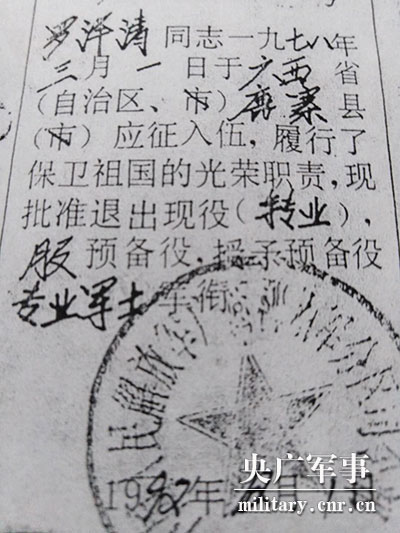 罗泽清同志一九七八年
三月一日于广西省县
(自治区、市)鹿寨
(市)应征入伍,履行了
保卫祖国的光荣职责,现
批准退出现役(转业),
服预备役,授予预备役
专业军士军衔
人民解放
19 年 月 日
央广军事
military.cnr.cn